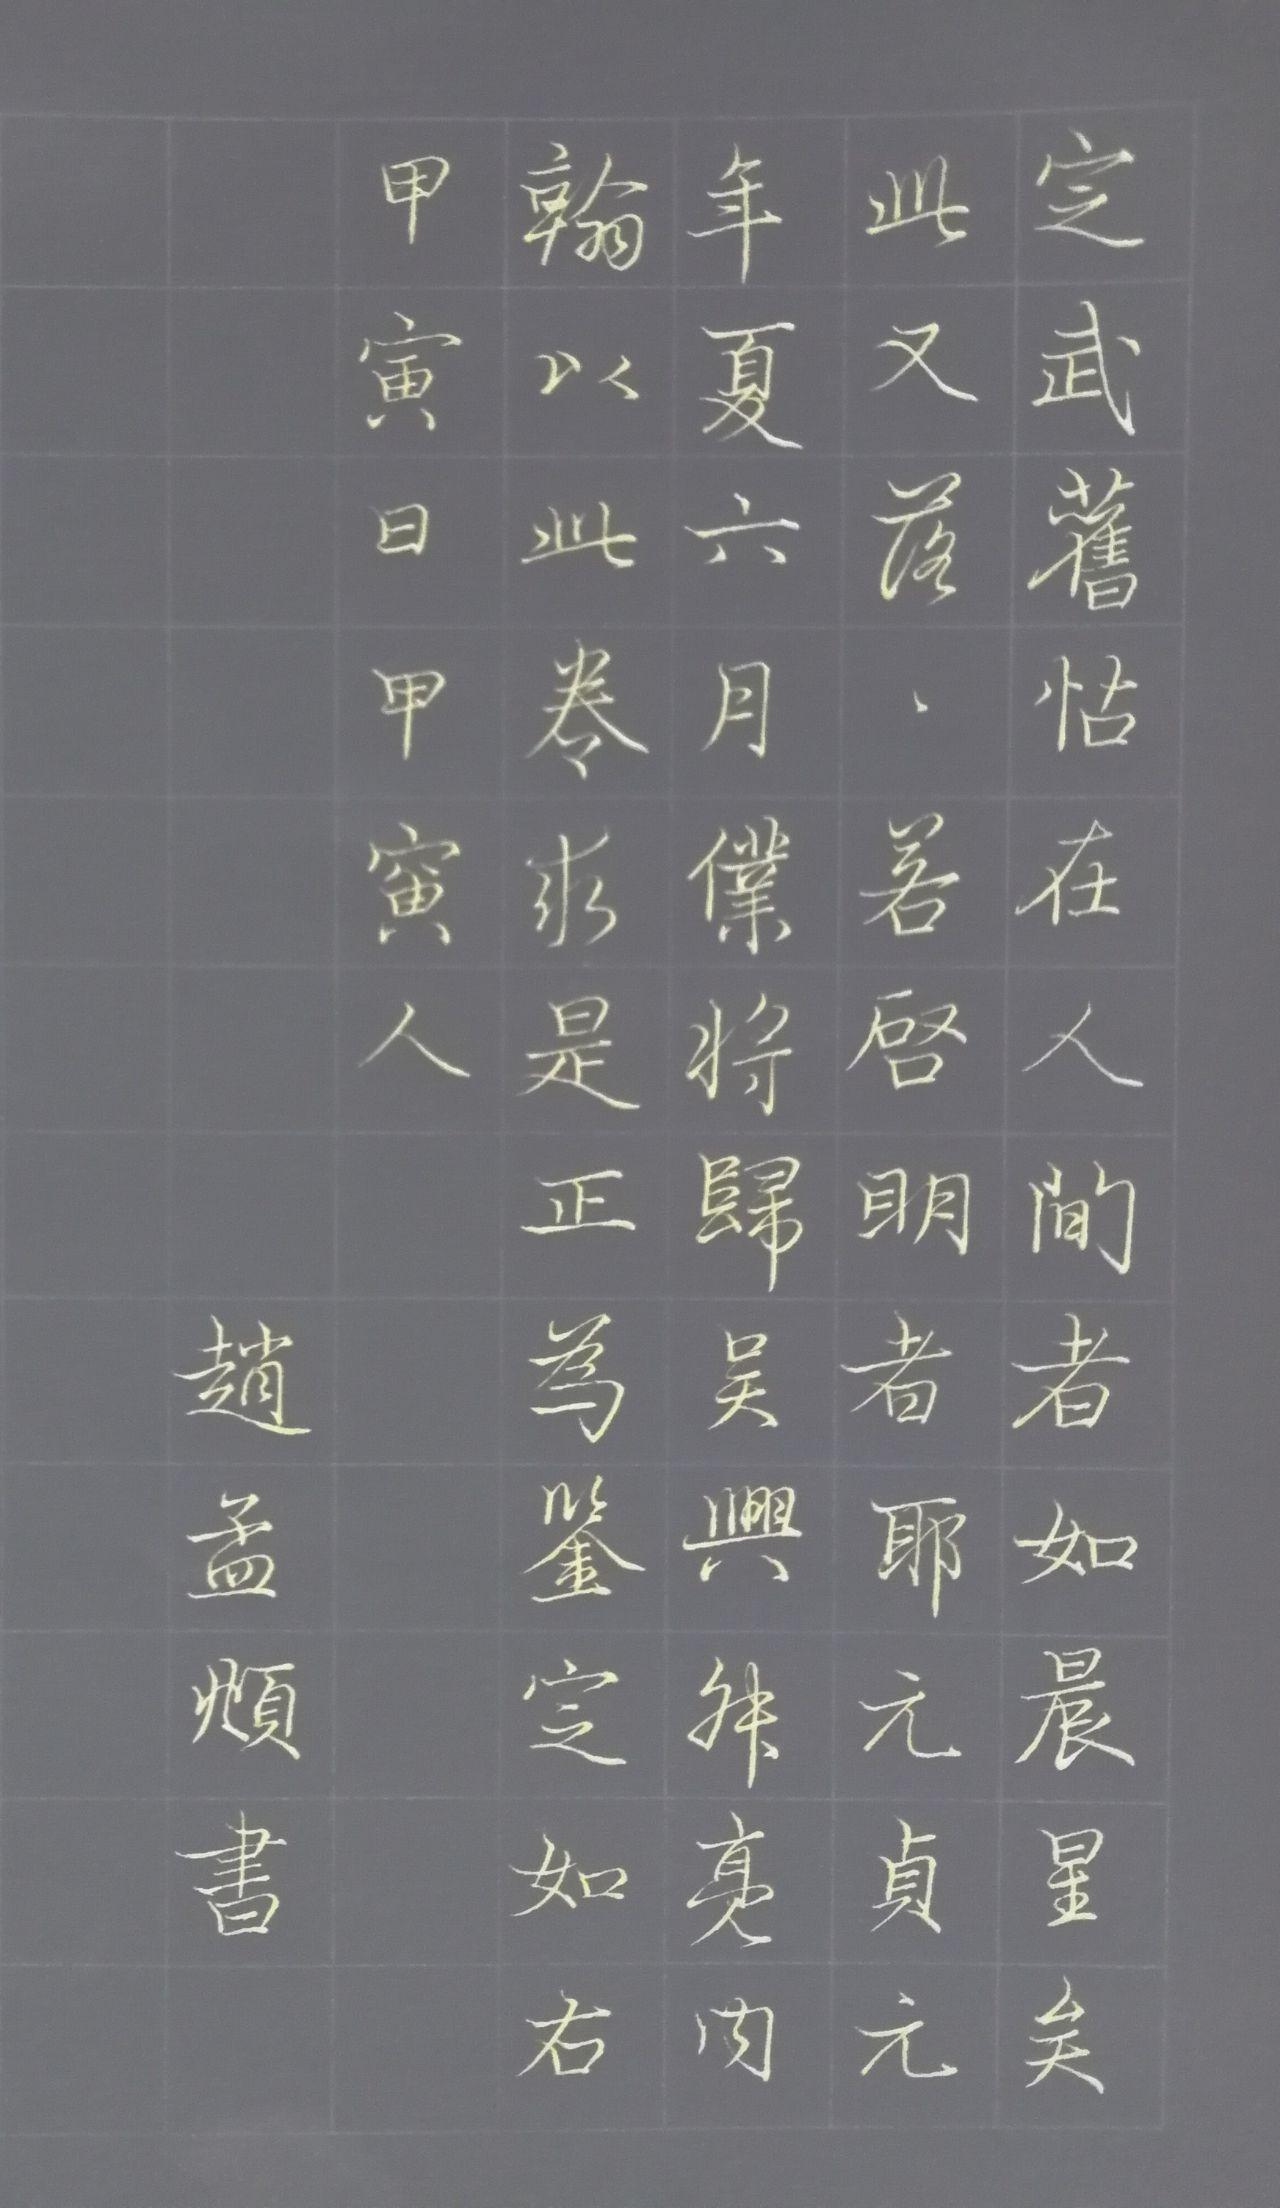 定武舊帖在人間者如晨星矣
此又落、若啓明者耶元貞元
年夏六月僕將歸吴興舛亮内
翰以此卷求是正為鑒定如右
甲寅日甲寅人
趙孟頫書